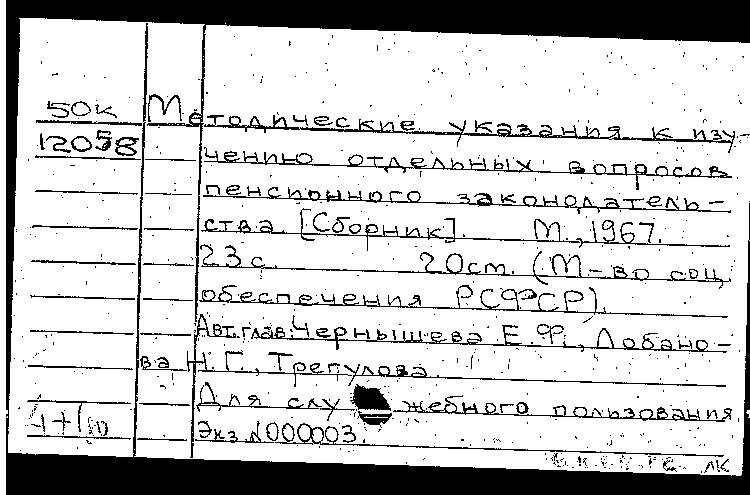 50к Методические указания к изу-
12058 чению отдельных вопросов
пенсионного законодатель-
ства. [Сборник]. М., 1967.
23 с. 20 см. (М-во соц.
обеспечения РСФСР).
Авт. глав: Чернышева Е.Ф., Лобано-
ва Н.Г., Трепулова.
Для служебного пользования
Экз. №000003.